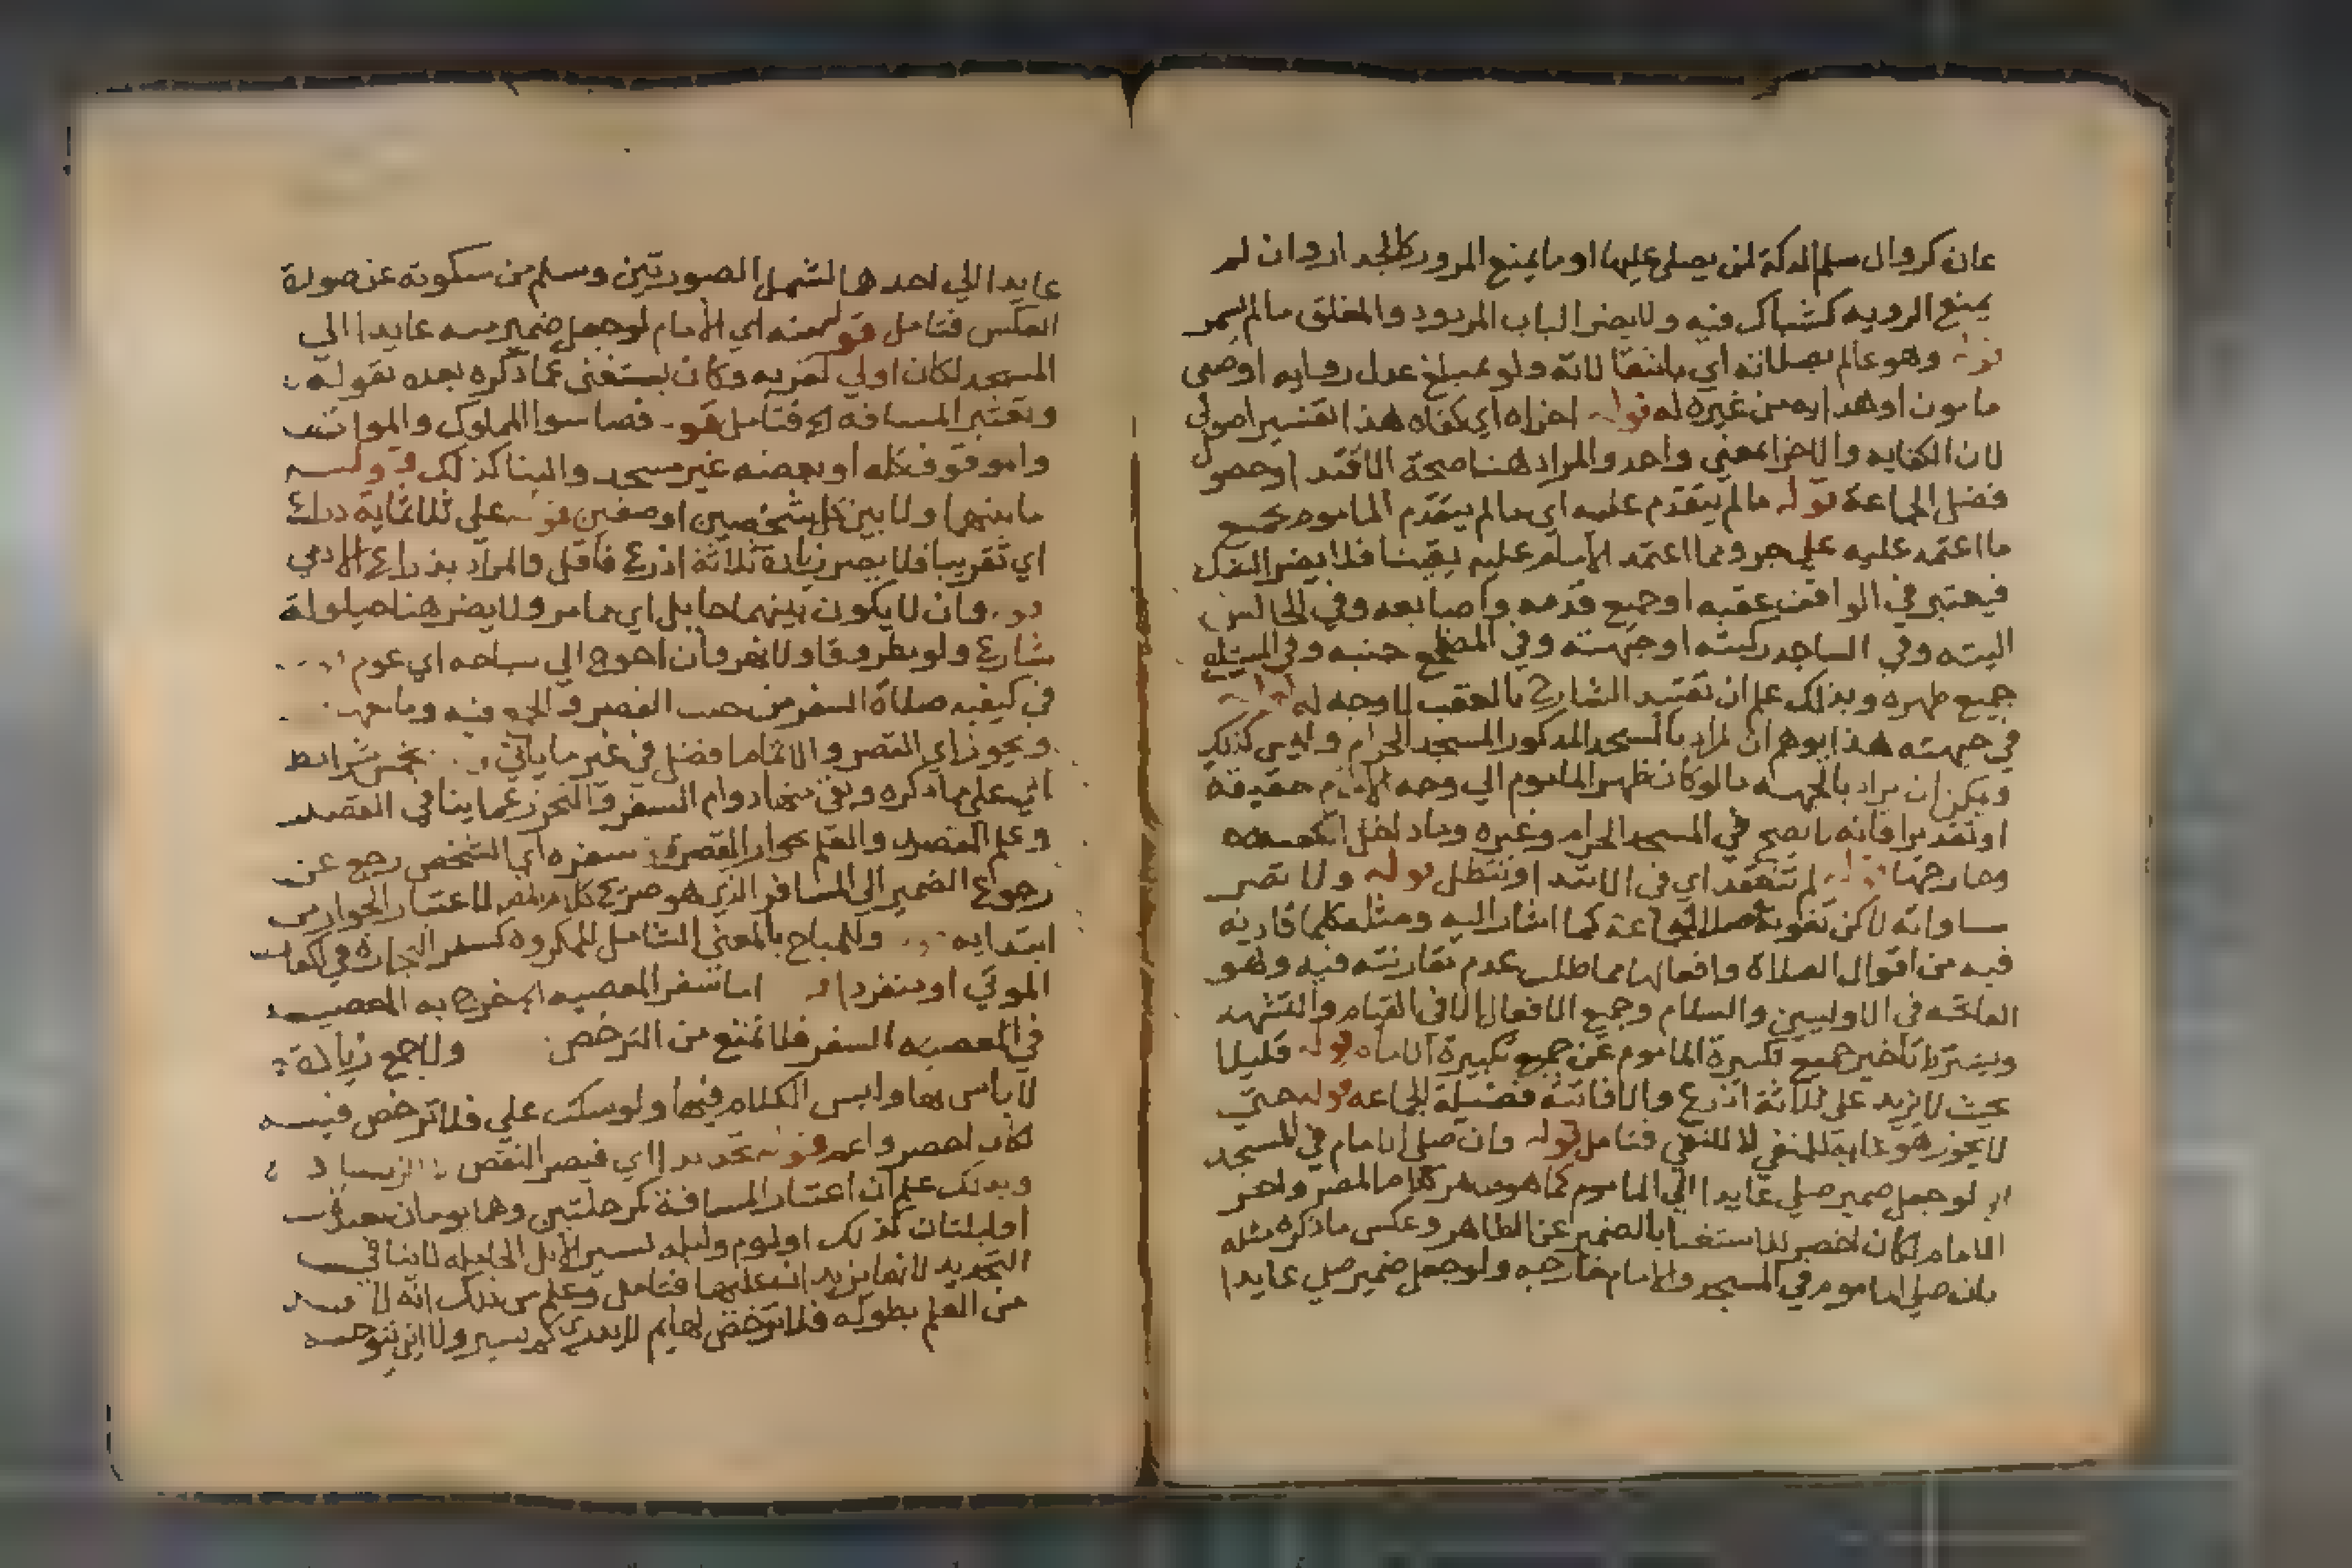 يمنع الرويه كشباك فيه ولا يضر الباب المردود والمغلق ما لم يسمر
قوله وهو عالم بصلاته اي بانتقالاته ولو بمبلغ عدل روايه او صبي
مامون او هدايه من غيره له قوله اجزاه اي كفاه هذا التفسير اصولي
لان الكفايه والاجزا بمعني واحد والمراد هنا صحة الاقتدا وحصول
فضل الجماعة قوله ما لم يتقدم عليه اي ما لم يتقدم الماموم بجميع
ما اعتمد عليه علي جزو مما اعتمد الامام عليه يقينا فلا يضر الشك
فيعتبر في الواقف عقبه او جميع قدمه واصابعه وفي الجالس
اليته وفي الساجد ركبته او جبهته وفي المضطجع جنبه وفي المستلقي
جميع ظهره وبذلك علم ان تقييد الشارح بالعقب لا وجه له
في جهته هذا يوهم ان المراد بالمسجد المذكور المسجد الحرام وليس كذلك
ويمكن ان يراد بالجهه ما لو كان ظهر الماموم الي وجه الامام حقيقة
او تقديرا فانه يصح في المسجد الحرام وغيره وداخل الكعبه
وخارجها قوله لم تنعقد اي في الابتدا او تبطل قوله ولا تضر
مساواته لاكن تفوته فضل الجماعة كما اشار اليه ومثله كلما قارنه
فيه من اقوال الصلاة وافعالها مما طلب عدم مقارنته فيه وهو
الفاتحه في الاوليين والسلام وجميع الافعال الا في القيام والتشهد
ويشترط تاخير جميع تكبيرة الماموم عن جميع تكبيرة الامام قوله قليلا
بحيث لا يزيد علي ثلاثة اذرع والا فاتته فضيلة الجماعه قوله حتي
لا يجوز هو غاية للمنفي لا للنفي فتامل قوله وان صلي الامام في المسجد
لو جعل ضمير صلي عايدا الي الماموم كما هو ظاهر كلام المصنف
الامام لكان اخصر للاستغنا بالضمير عن الظاهر وعكس ما ذكره مثله
بان صلي الماموم في المسجد والامام خارجه ولو جعل ضمير صلي عايدا
عايدا الي احدهما لشمل الصورتين وسلم من سكوته عن صورة
العكس فتامل قوله منه اي الامام لو جعل ضمير منه عايدا الي
المسجد لكان اولي لقربه وكان يستغني عما ذكره بعده بقوله
وتعتبر المسافه الخ فتامل قوله فضا سوا المملوك والموات
والموقوف كله او بعضه غير مسجد والبنا كذلك قوله
ما بينهما ولا بين كل شخصين او صفين قوله علي ثلاثماية ذراع
اي تقريبا فلا يضر زيادة ثلاثة اذرع فاقل والمراد بذراع الادمي
قوله وان لا يكون بينهما حايل اي مما مر ولا يضر هنا حيلولة
شارع ولو مطروقا ولا نهر وان احوج الي سباحه اي عوم
في كيفيه صلاة السفر من حيث القصر والجمع فيه
ويجوز اي القصر والاتمام افضل في غير ما ياتي بخمس شرايط
اي علي ما ذكره وبقي منها دوام السفر والتحرز عما ينافي القصد
وعلم المقصد والعلم بجواز القصر سفره اي الشخص رجع عن
رجوع الضمير الي المسافر الذي هو صريح لاعتبار الجواز من
ابتدايه وللمباح بالمعني الشامل للمكروه كسفر التجارة في اكفان
الموتي او منفردا اما سفر المعصيه
في المعصيه السفر فلا تمنع من الترخص ولا جمع زيادة
لا باس بها وليس الكلام فيها ولو سكت علي فلا ترخص فيه
لكان اخصر واعم قوله تحديدا اي فيضر النقص
وبذلك علم ان اعتبار المسافة بمرحلتين وهما يومان معتدلان
او ليلتان كذلك او يوم وليله بسير الابل لا ينافي
التحديد لانها عليها فتامل وعلم من ذلك انه لا بد
من العلم بطوله فلا ترخص لهايم لا يدري كم يسير ولا اين يتوجه